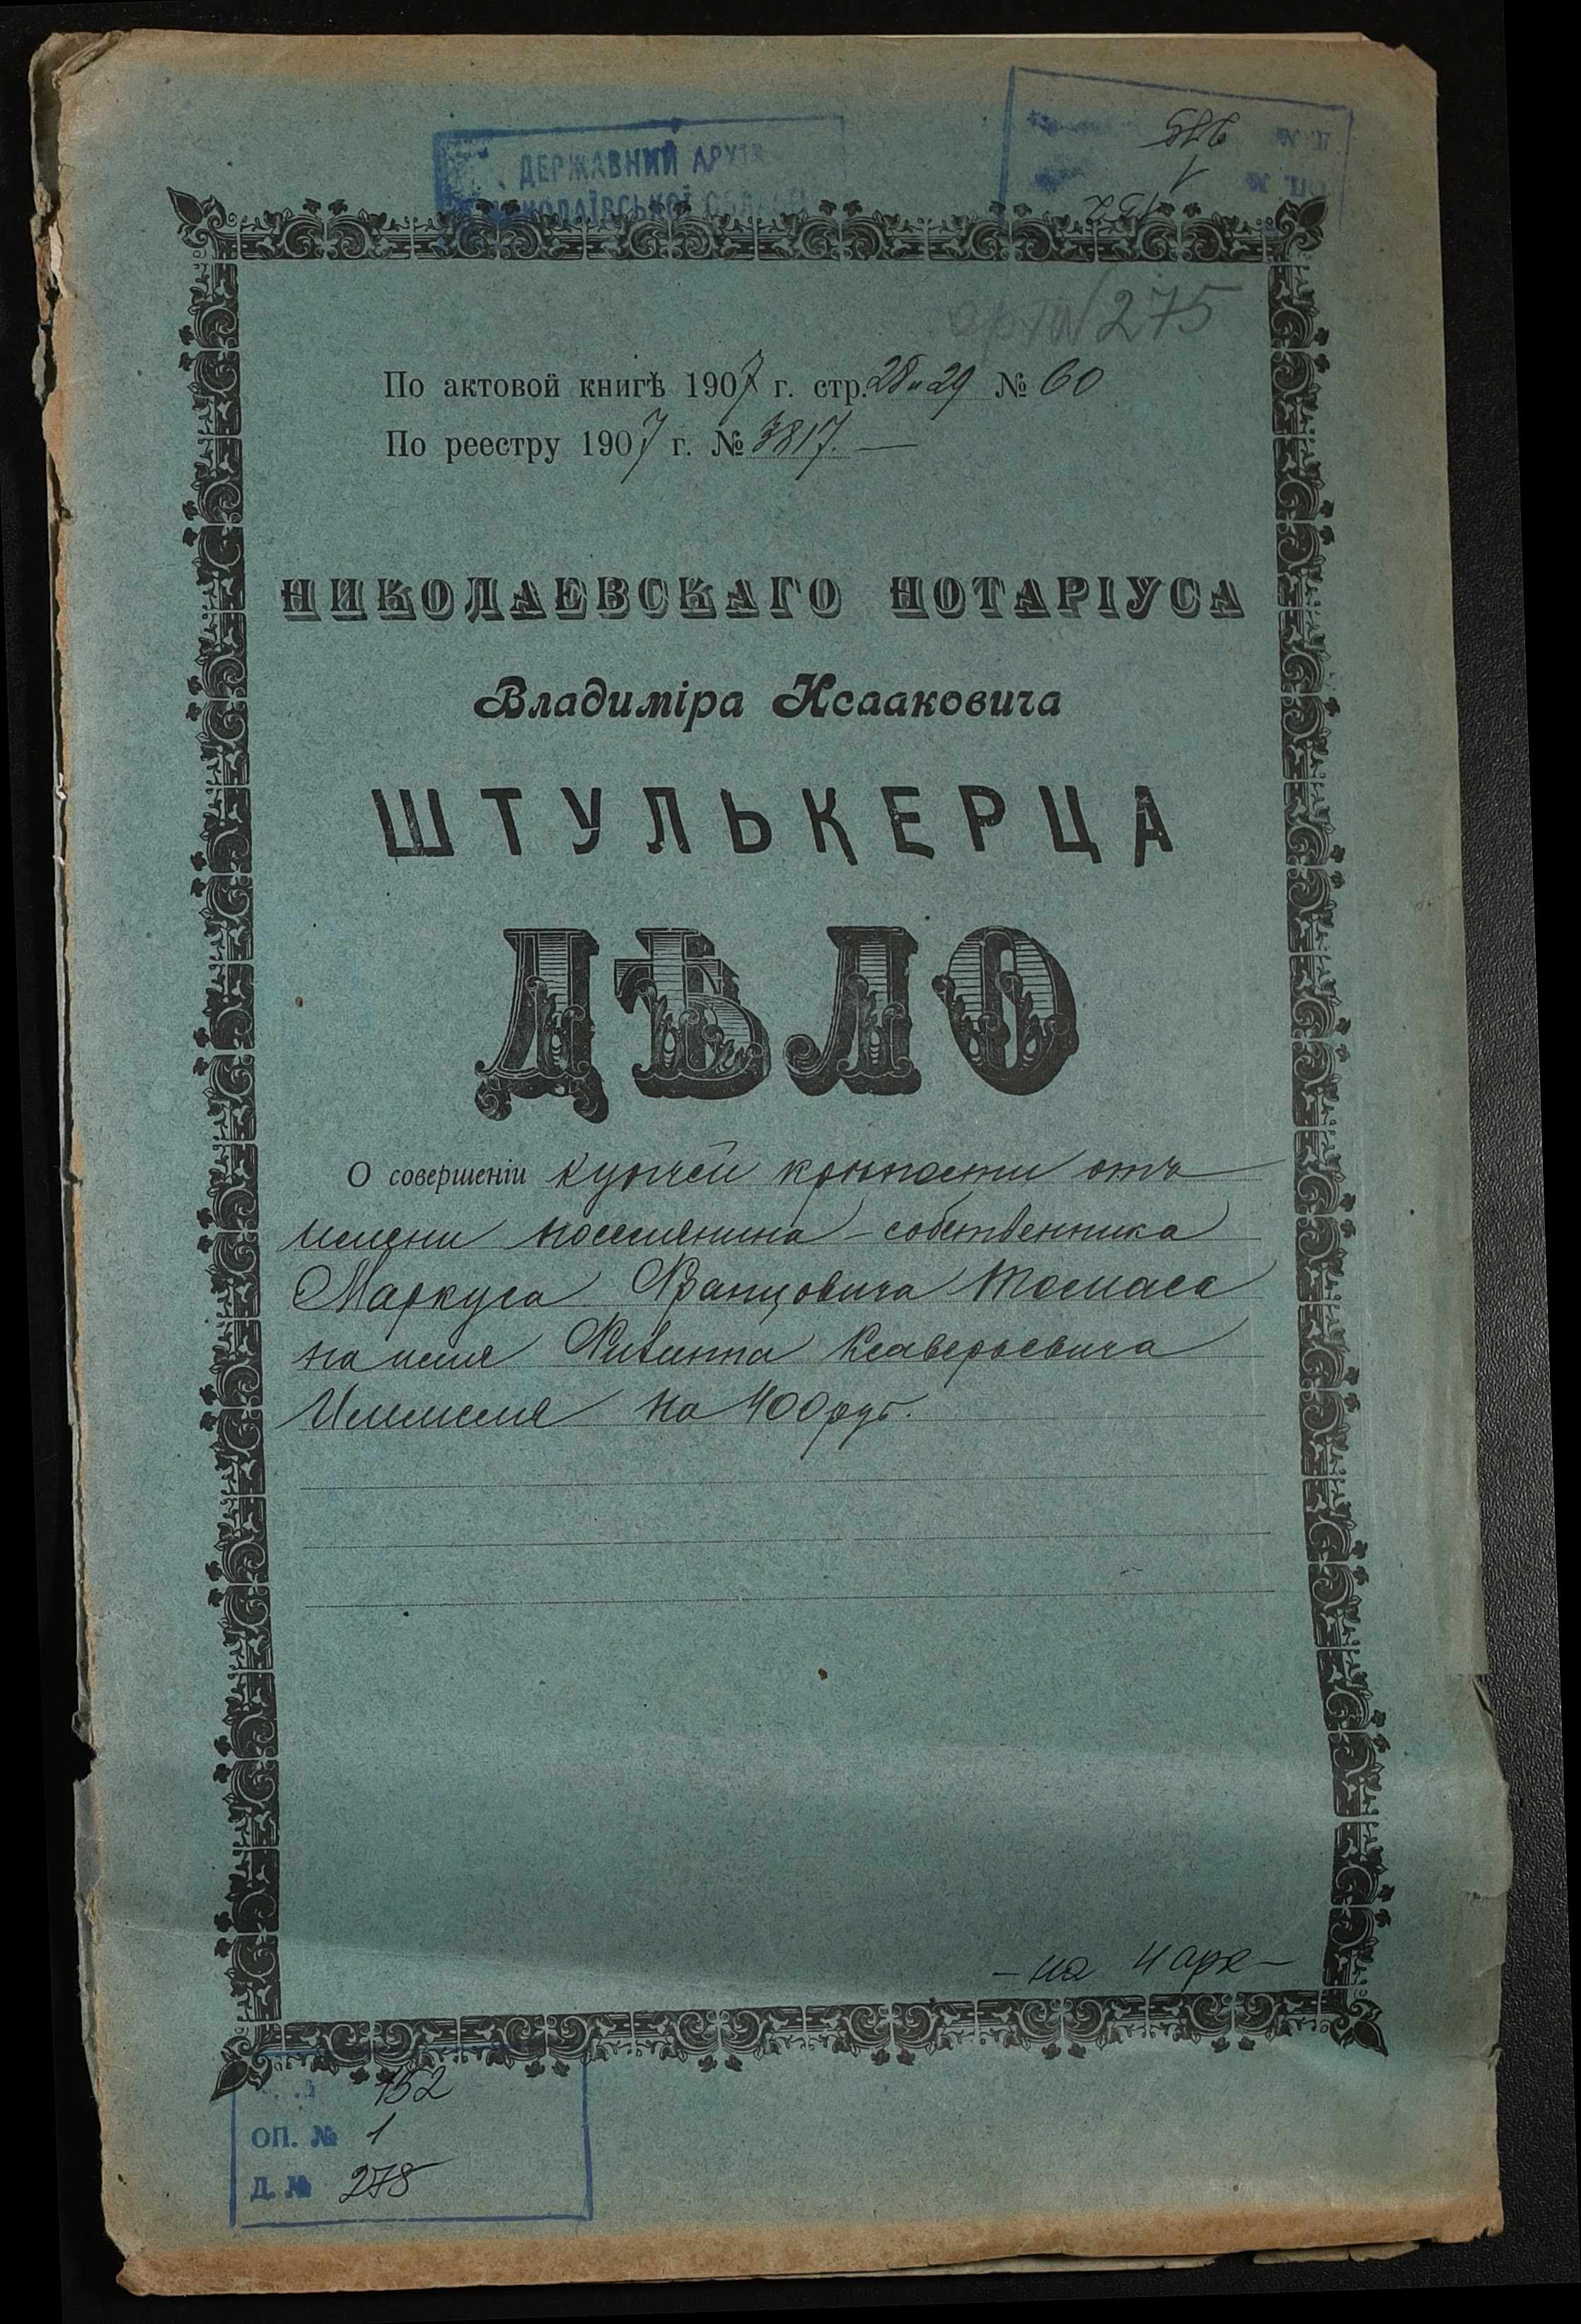 ДЕРЖАВНИЙ АРХІВ
МИКОЛАЇВСЬКОЇ ОБЛАСТІ
275
По актовой книгѣ 1907 г. стр. 28 и 29 № 60
По реестру 1907 г. № 3817. —
НИКОЛАЕВСКАГО НОТАРІУСА
Владиміра Исааковича
ШТУЛЬКЕРЦА
ДѢЛО
О совершеніи купчей крѣпости отъ
имени поселянина-собственника
Маркуса Францовича Томаса
на имя Ксаверьевича
на 400 руб.
– на 4 арк –
152
ОП. № 1
Д. № 275